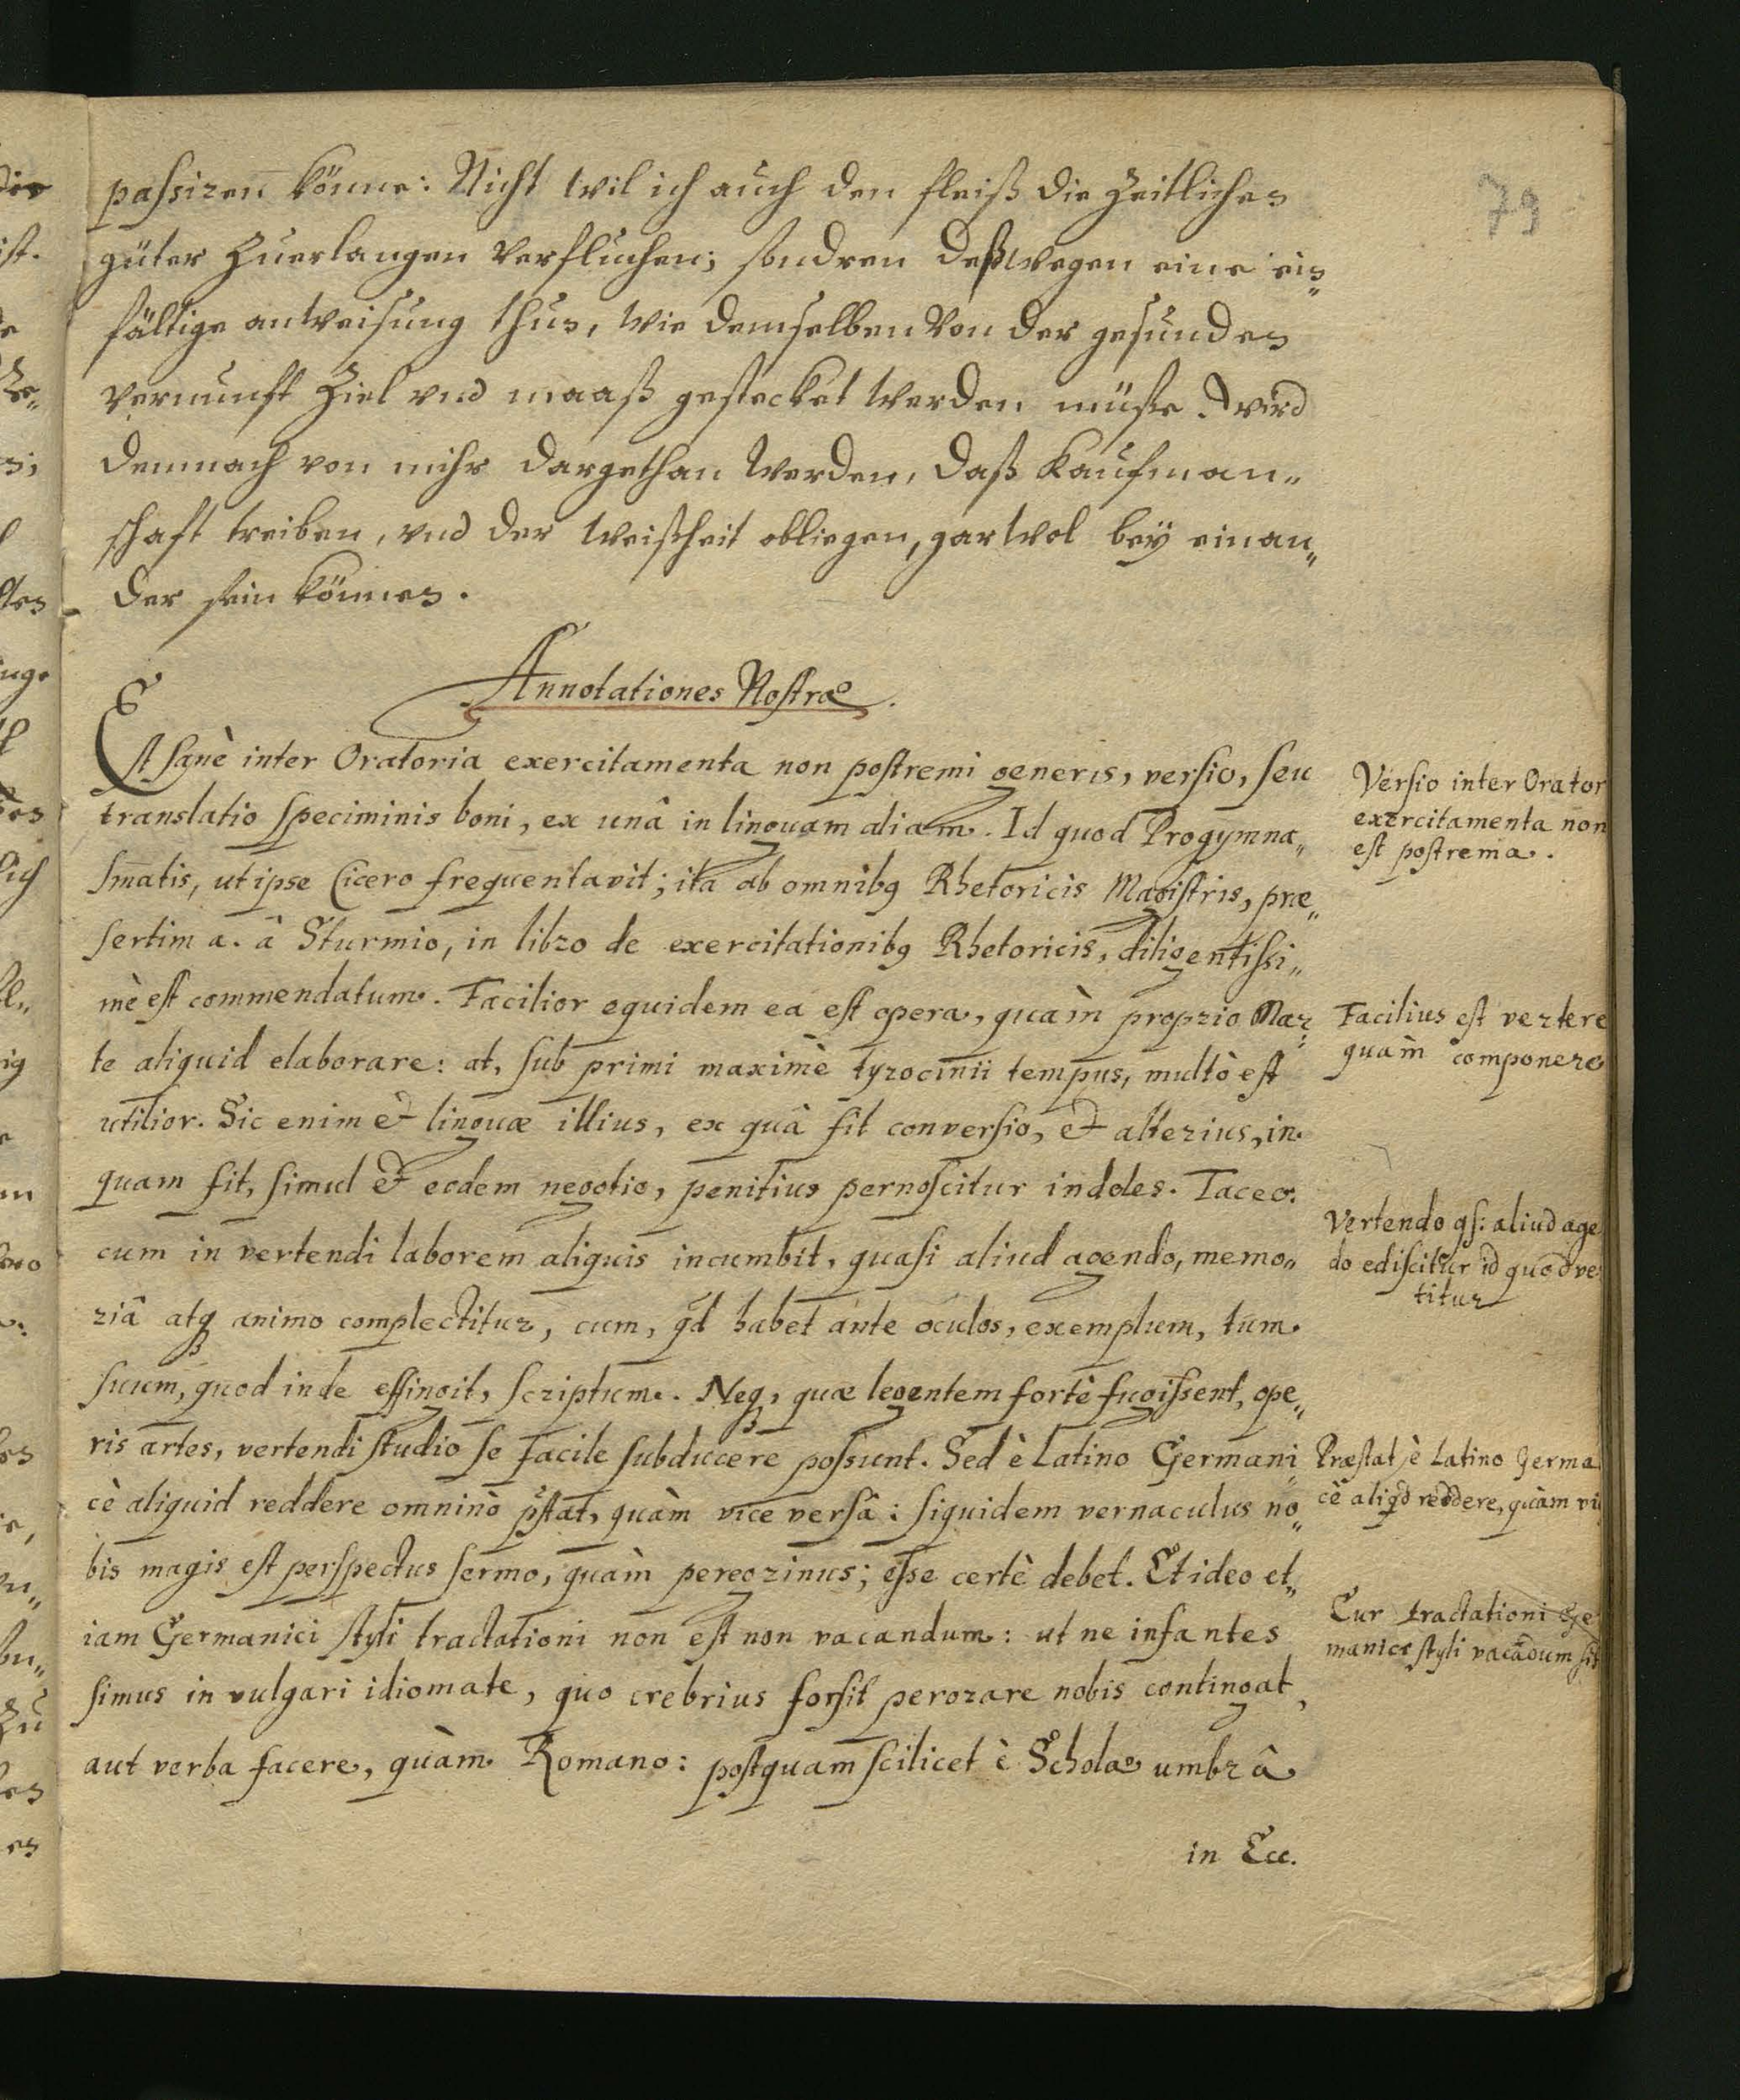 79
passiren könne: Nicht wil ich auch den fleiß die Zeitlichen
güter Zuerlangen verfluchen; sondren deßwegen eine ein„
fältige anweisung thun, wie demselben von der gesunden
vernunfft Ziel vnd maaß gestecket werden müsse. Wird
demnach von mihr dargethan werden, daß Kaufman„
schaft treiben, vnd der weißheit obliegen, gar wol beÿ einan„
der sein können.
Annotationes Nostræ.
Est sanè inter Oratoria exercitamenta non postremi generis, versio, seu
translatio speciminis boni, ex unâ in linguam aliam. Id quod Progymna„
smatis, ut ipse Cicero frequentavit; ita ab omnibꝗ Rhetoricis Magistris, præ„
sertim a. â Sturmio, in libro de exercitationibꝗ Rhetoricis, diligentissi„
mè est commendatum. Facilior equidem ea est opera, quàm proprio Mar„
te aliquid elaborare: at, sub primi maximè tyrocinii tempus, multò est
utilior. Sic enim & linguæ illius, ex quâ fit conversio, & alterius, in
quam fit, simul & eodem negotio, penitius pernoscitur indoles. Taceo.
cum in vertendi laborem aliquis incumbit, quasi aliud agendo, memo„
riâ atqꝫ animo complectitur, cum, qd habet ante oculos, exemplum, tum
suum, quod inde effingit, scriptum. Neqꝫ, quæ legentem fortè fugissent, ope„
ris artes, vertendi studio se facile subducere possunt. Sed è Latino Germani„
cè aliquid reddere omninò pstat, quàm vice versâ: siquidem vernaculus no„
bis magis est perspectus sermo, quàm peregrinus; esse certè debet. Et ideo et„
iam Germanici styli tractationi non est non vacandum: ut ne infantes
simus in vulgari idiomate, quo crebrius forsit perorare nobis contingat,
aut verba facere, quàm Romano: postquam scilicet è Scholæ umbrâ
in Ecc.
Versio inter Orator
exercitamenta non
est postrema.
Facilius est vertere
quàm componere
Vertendo qs: aliud age
do ediscitur id quod ve
titur
Præstat, è Latino Germa
cè aliqd reddere, quàm vi
Cur tractationi Ge
manici styli vacãdum sit